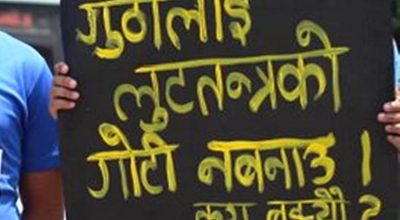 गुठीलाई
लुटतन्त्रको
गोटी नबनाउ ।